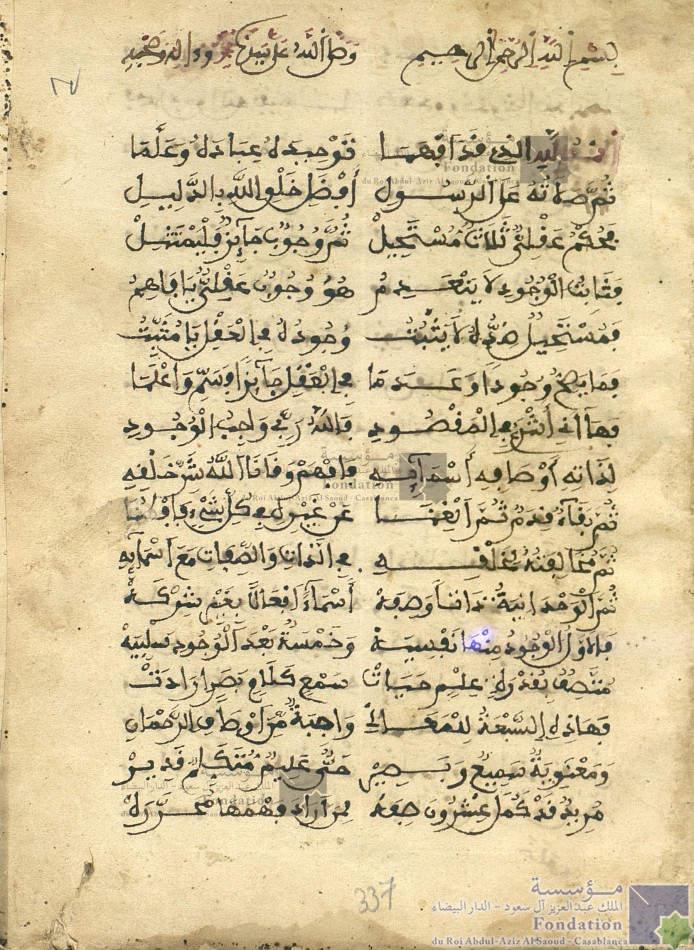 بسم الله الرحمن الرحيم وصلى الله على سيدنا محمد وءاله وصحبه
الحمد لله الذي قد افهما توحيده عباده وعلما
ثم صلاته على الرسول أفضل خلق الله بالدليل
محكم عقلي ثلاث مستحيل ثم وجوب جايز فليمتثل
فثابت الوجود لا ينعدم هو وجوب عقلي يا فاهم
فمستحيل ضده لا يثبت وجوده في العقل يا مثبت
فما يصح وجودا وعدما في العقل جايزا وسم واعلما
فها أنا أشرع في المقصود فالله ربي واجب الوجود
لذاته أوصافه أسمآيه فافهم وقانا الله شر خلقه
ثم بقآه قدم ثم الغنا عن غيره في كل شيء
ثم مخالفته لخلقه في الذات والصفات مع اسمآيه
ثم الوحدانية ذاتا وصفة أسمآء افعالا بغير شركة
فالاول الوجود منها نفسية وخمسة بعد الوجود سلبية
متصف بقدرة علم حيات سمع كلام بصر ارادت
فهاذه السبعة للمعاني واجبة من اوصاف الرحمان
ومعنوية سميع وبصير حي عليم متكلم قدير
مريد قد كمل عشرون صفة لمن اراد فهمها محررة
337
مؤسسة
الملك عبد العزيز آل سعود - الدار البيضاء
Fondation
du Roi Abdul-Aziz Al Saoud - Casablanca